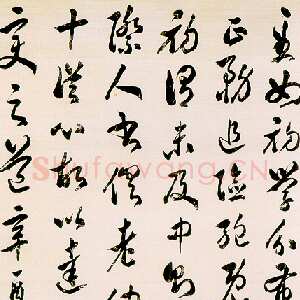 至如初學分布
正務追險絕既
初謂未及中則
際人書俱老仲
十從心故以達
變之道辛酉
Shufawang.CN